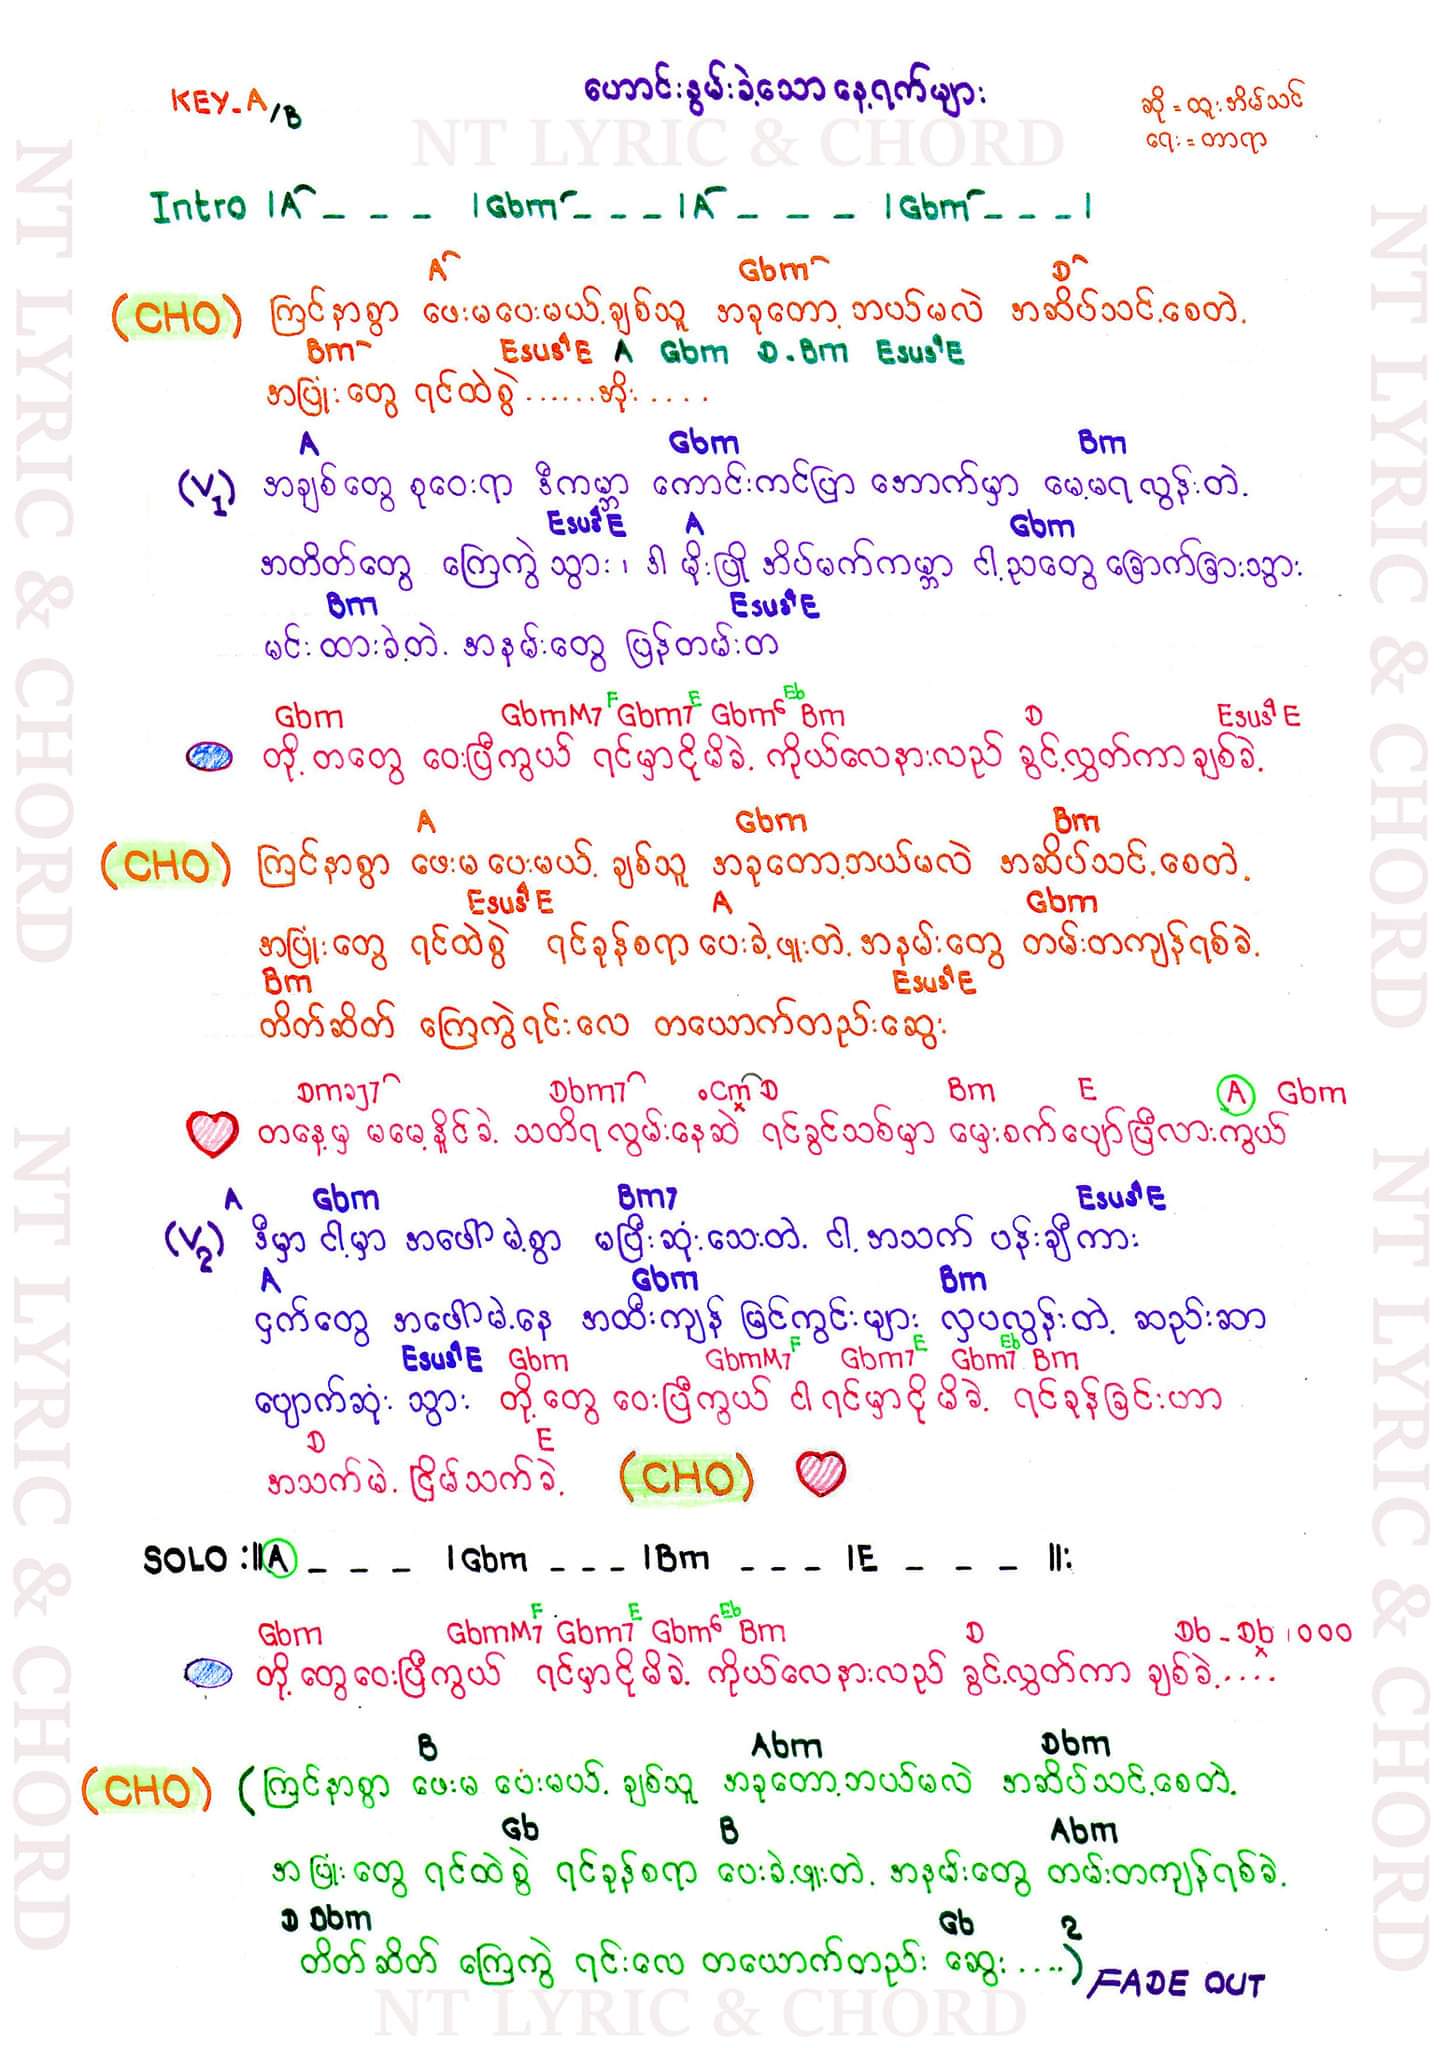 ဟောင်းနွမ်းခဲ့သော နေ့ရက်များ
KEY-A/B
ဆို = ထူးအိမ်သင်
ရေး = တာရာ
NT LYRIC & CHORD
Intro |A _ _ _ |Gbm _ _ _ |A _ _ _ |Gbm _ _ _ |
A Gbm D
(CHO) ကြင်နာစွာ ဖေးမပေးမယ့်ချစ်သူ အခုတော့ ဘယ်မလဲ အဆိပ်သင့်စေတဲ့
Bm Esus4 E A Gbm D . Bm Esus4 E
အပြုံးတွေ ရင်ထဲစွဲ ...... အိုး .....
A Gbm Bm
(V1) အချစ်တွေ စုဝေးရာ ဒီကမ္ဘာ ကောင်းကင်ပြာ အောက်မှာ မေ့မရ လွန်းတဲ့
Esus4 E A Gbm
အတိတ်တွေ ကြေကွဲ သွား ၊ ဒါ မိုးပြို အိပ်မက်ကမ္ဘာ ငါ့ညတွေ ခြောက်ခြားသွား
Bm Esus4 E
မင်း ထားခဲ့တဲ့ အနမ်းတွေ ပြန်တမ်းတ
Gbm GbmM7 F Gbm7 E Gbm6 Eb Bm D Esus4 E
တို့ တတွေ ဝေးပြီကွယ် ရင်မှာငိုမိခဲ့ ကိုယ်လေနားလည် ခွင့်လွှတ်ကာ ချစ်ခဲ့
A Gbm Bm
(CHO) ကြင်နာစွာ ဖေးမ ပေးမယ့် ချစ်သူ အခုတော့ဘယ်မလဲ အဆိပ်သင့်စေတဲ့
Esus4 E A Gbm
အပြုံးတွေ ရင်ထဲစွဲ ရင်ခုန်စရာ ပေးခဲ့ဖူးတဲ့ အနမ်းတွေ တမ်းတကျန်ရစ်ခဲ့
Bm Esus4 E
တိတ်ဆိတ် ကြေကွဲရင်းလေ တယောက်တည်းဆွေး
Dmaj7 Dbm7 Cm D Bm E A Gbm
တနေ့မှ မမေ့နိုင်ခဲ့ သတိရလွမ်းနေဆဲ ရင်ခွင်သစ်မှာ မှေးစက်ပျော်ပြီလားကွယ်
A Gbm Bm7 Esus4 E
(V2) ဒီမှာ ငါ့မှာ အဖေါ်မဲ့စွာ မပြီးဆုံးသေးတဲ့ ငါ့ အသက် ပန်းချီကား
A Gbm Bm
ငှက်တွေ အဖေါ်မဲ့နေ အထီးကျန် မြင်ကွင်းများ လှပလွန်းတဲ့ ဆည်းဆာ
Esus4 E Gbm GbmM7 F Gbm7 E Gbm7 Eb Bm
ပျောက်ဆုံး သွား တို့တွေ ဝေးပြီကွယ် ငါ ရင်မှာငို မိခဲ့ ရင်ခုန်ခြင်းဟာ
D E
အသက်မဲ့ ငြိမ်သက်ခဲ့ (CHO)
SOLO :||A _ _ _ |Gbm _ _ _ |Bm _ _ _ |E _ _ _ ||:
Gbm GbmM7 F Gbm7 E Gbm6 Eb Bm D Db - Db
တို့တွေဝေးပြီကွယ် ရင်မှာငိုမိခဲ့ ကိုယ်လေနားလည် ခွင့်လွှတ်ကာ ချစ်ခဲ့....
B Abm Dbm
(CHO) (ကြင်နာစွာ ဖေးမ ပေးမယ့် ချစ်သူ အခုတော့ဘယ်မလဲ အဆိပ်သင့်စေတဲ့
Gb B Abm
အပြုံးတွေ ရင်ထဲစွဲ ရင်ခုန်စရာ ပေးခဲ့ဖူးတဲ့ အနမ်းတွေ တမ်းတကျန်ရစ်ခဲ့
D Dbm Gb 2
တိတ်ဆိတ် ကြေကွဲ ရင်းလေ တယောက်တည်း ဆွေး ....) FADE OUT
NT LYRIC & CHORD
NT LYRIC & CHORD
NT LYRIC & CHORD
NT LYRIC & CHORD
NT LYRIC & CHORD